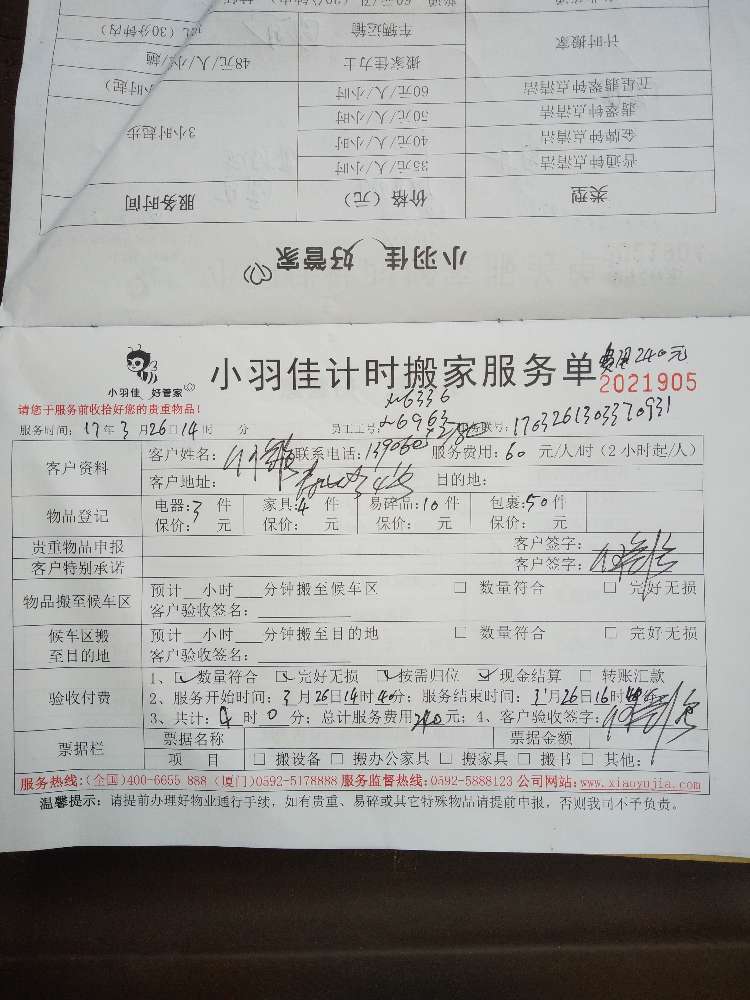 普通 60元/人/小时
计时搬家 车辆运输 (30分钟内)
搬家佳力士 48元/人/小时
五星翡翠钟点清洁 60元/人/小时
翡翠钟点清洁 50元/人/小时
金牌钟点清洁 40元/人/小时 3小时起步
普通钟点清洁 35元/人/小时
类型 价格(元) 服务时间
小羽佳 好管家
小羽佳 好管家
小羽佳计时搬家服务单 费用240元
2021905
请您于服务前收拾好您的贵重物品!
服务时间: 17年3月26日14时 分 员工工号: 6336 6963 服务联号: 1703261303370931
客户资料 客户姓名: 联系电话: 服务费用: 60 元/人/时 (2小时起/人)
客户地址: 目的地:
物品登记 电器: 3 件 家具: 4 件 易碎品: 10 件 包裹: 50 件
保价: 元 保价: 元 保价: 元 保价: 元
贵重物品申报 客户签字:
客户特别承诺 客户签字:
物品搬至候车区 预计__小时___分钟搬至候车区 □ 数量符合 □ 完好无损
客户验收签名:
候车区搬至目的地 预计__小时___分钟搬至目的地 □ 数量符合 □ 完好无损
客户验收签名:
验收付费 1、☑数量符合 ☑完好无损 ☑按需归位 ☑现金结算 □ 转账汇款
2、服务开始时间: 3月26日14时40分; 服务结束时间: 3月26日16时
3、共计: 4 时 0 分; 总计服务费用240元; 4、客户验收签字:
票据栏 票据名称 票据金额
项 目 □ 搬设备 □ 搬办公家具 □ 搬家具 □ 搬书 □ 其他:
服务热线:(全国)400-6655 888 (厦门)0592-5178888 服务监督热线:0592-5888123 公司网站:www.xiaoyujia.com
温馨提示: 请提前办理好物业通行手续, 如有贵重、易碎或其它特殊物品请提前申报, 否则我司不予负责。